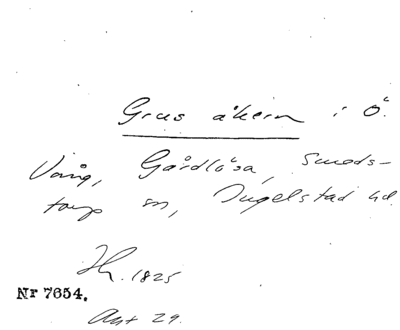 Grus åkern i Ö.
Vång, Gårdlösa, Smeds-
torp sn, Ingelstad hd.
1825
Nr 7654.
Akt 29.